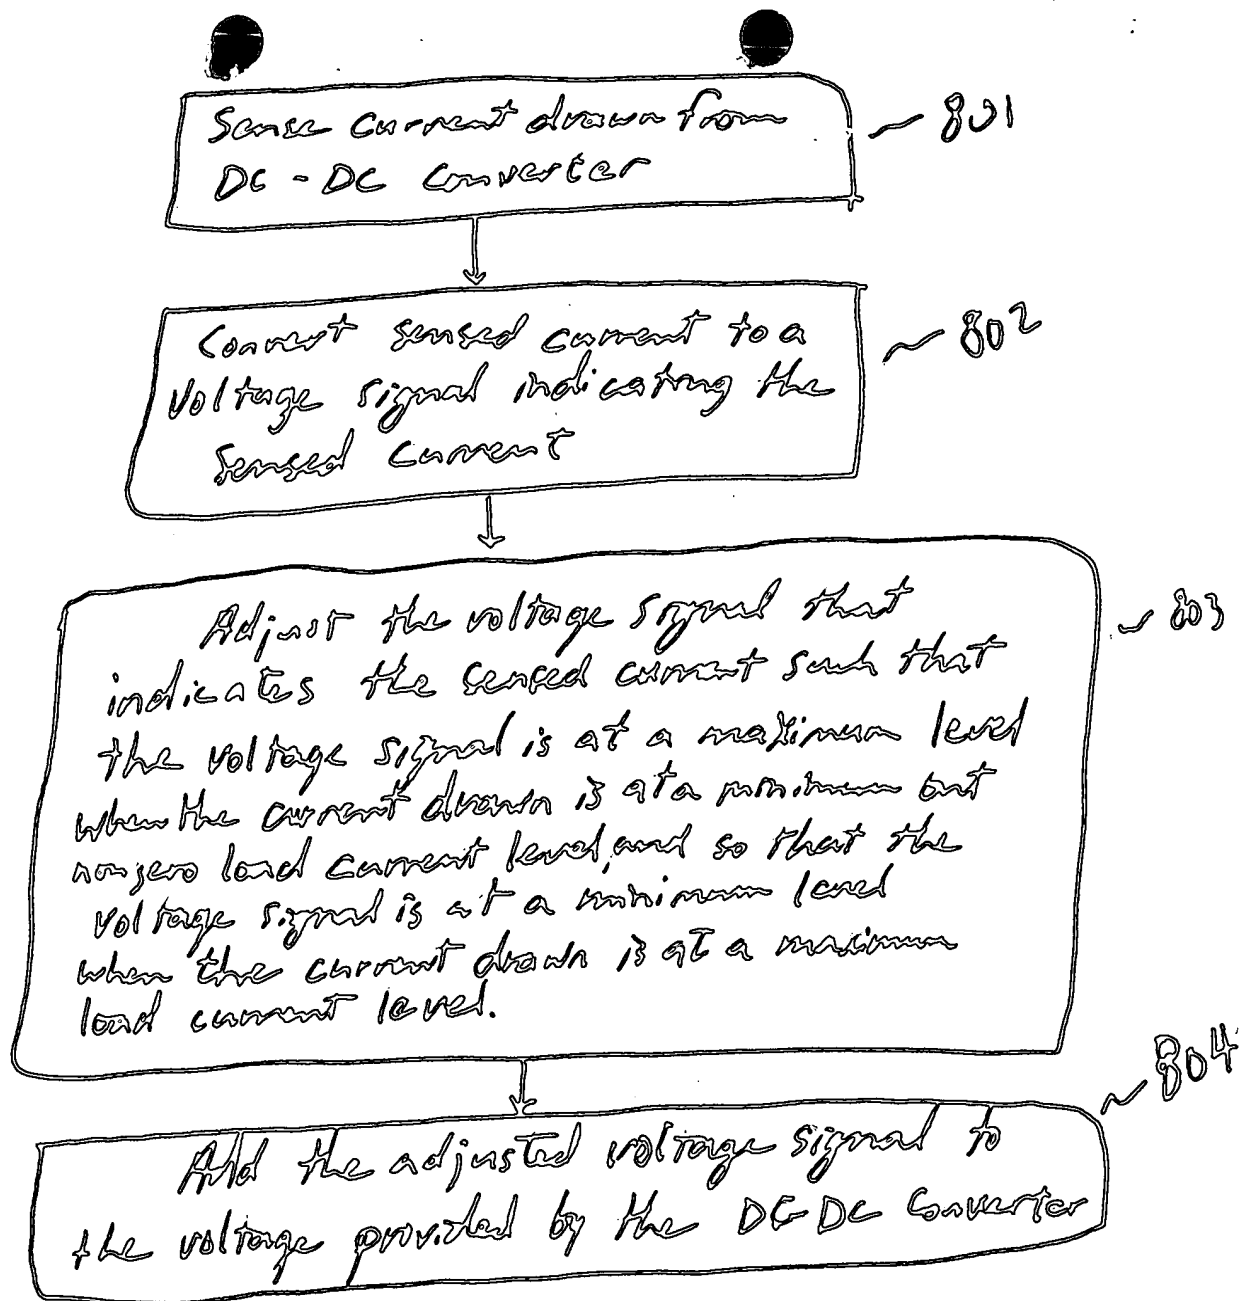 Sense current drawn from
DC-DC converter
801
Convert sensed current to a
voltage signal indicating the
sensed current
802
Adjust the voltage signal that
indicates the sensed current such that
the voltage signal is at a maximum level
when the current drawn is at a minimum but
nonzero load current level, and so that the
voltage signal is at a minimum level
when the current drawn is at a maximum
load current level.
803
Add the adjusted voltage signal to
the voltage provided by the DC-DC converter
804